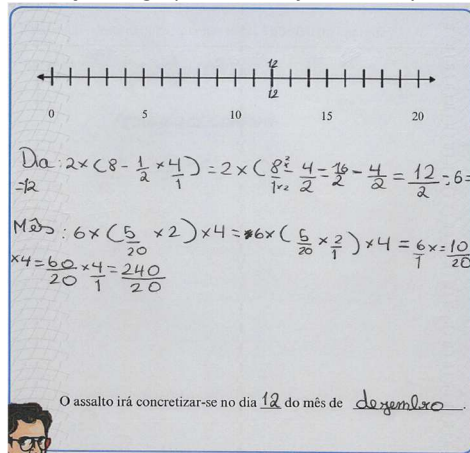 12
12
0 5 10 15 20
Dia: 2 × (8 - 1/2 × 4/1) = 2 × (8/1 ×2/×2 - 4/2 = 16/2 - 4/2 = 12/2 = 6 =
=12
Mês: 6 × (5/20 × 2) × 4 = 6 × (5/20 × 2/1) × 4 = 6/1 × = 10/20
×4 = 60/20 × 4/1 = 240/20
O assalto irá concretizar-se no dia 12 do mês de dezembro.